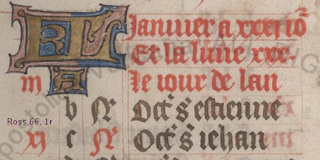 KL Januier a xxxi io²
Et la lune xxx.
m A Le iour de lan
b N Oct's estienne
xj c N Oct's iehan
Ross 66, 1r